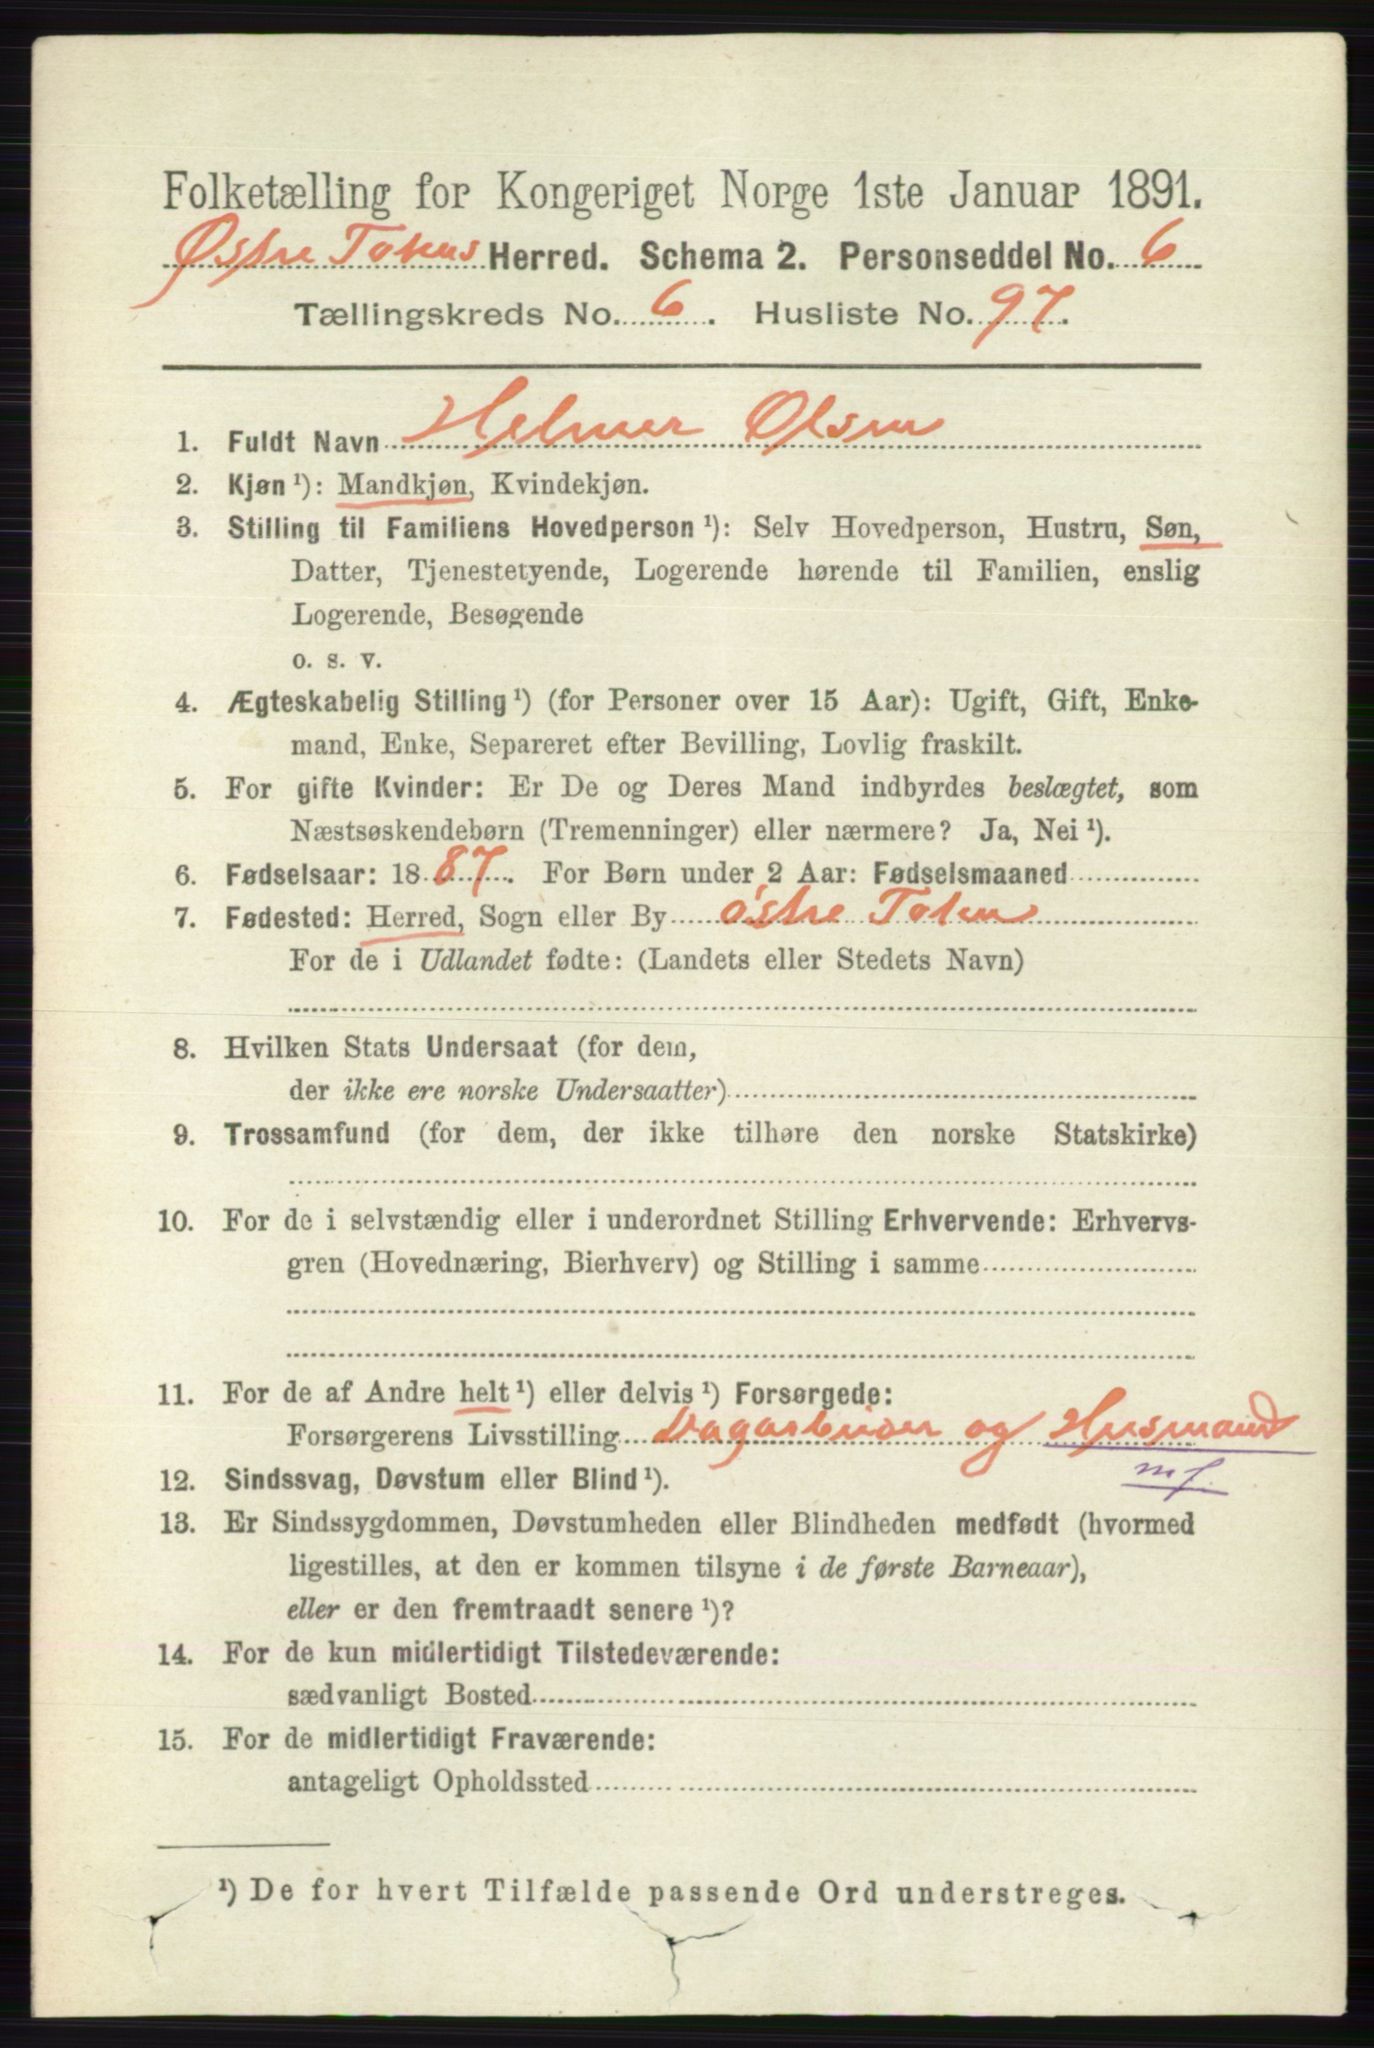 Folketælling for Kongeriget Norge 1ste Januar 1891.
Østre Totens Herred. Schema 2. Personseddel No. 6
Tællingskreds No. 6. Husliste No. 97.
1. Fuldt Navn Helmer Olsen
2. Kjøn ¹): Mandkjøn, Kvindekjøn.
3. Stilling til Familiens Hovedperson ¹): Selv Hovedperson, Hustru, Søn,
Datter, Tjenestetyende, Logerende hørende til Familien, enslig
Logerende, Besøgende
o. s. v.
4. Ægteskabelig Stilling ¹) (for Personer over 15 Aar): Ugift, Gift, Enke-
mand, Enke, Separeret efter Bevilling, Lovlig fraskilt.
5. For gifte Kvinder: Er De og Deres Mand indbyrdes beslægtet, som
Næstsøskendebørn (Tremenninger) eller nærmere? Ja, Nei ¹).
6. Fødselsaar: 1887. For Børn under 2 Aar: Fødselsmaaned
7. Fødested: Herred, Sogn eller By østre Toten
For de i Udlandet fødte: (Landets eller Stedets Navn)
8. Hvilken Stats Undersaat (for dem,
der ikke ere norske Undersaatter)
9. Trossamfund (for dem, der ikke tilhøre den norske Statskirke)
10. For de i selvstændig eller i underordnet Stilling Erhvervende: Erhvervs-
gren (Hovednæring, Bierhverv) og Stilling i samme
11. For de af Andre helt ¹) eller delvis ¹) Forsørgede:
Forsørgerens Livsstilling Dagarbeider og Husmand
m f.
12. Sindssvag, Døvstum eller Blind ¹).
13. Er Sindssygdommen, Døvstumheden eller Blindheden medfødt (hvormed
ligestilles, at den er kommen tilsyne i de første Barneaar),
eller er den fremtraadt senere ¹)?
14. For de kun midlertidigt Tilstedeværende:
sædvanligt Bosted
15. For de midlertidigt Fraværende:
antageligt Opholdssted
¹) De for hvert Tilfælde passende Ord understreges.